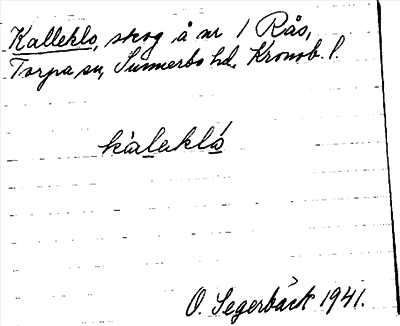 Kalleklo, skog å nr 1 Rås,
Torpa sn, Sunnerbo hd, Kronob. l.
kàlekló
O. Segerbäck 1941.